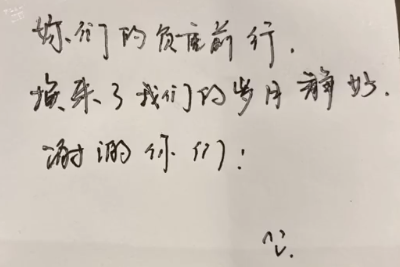 妳们的负重前行,
换来了我们的岁月静好.
谢谢你们!